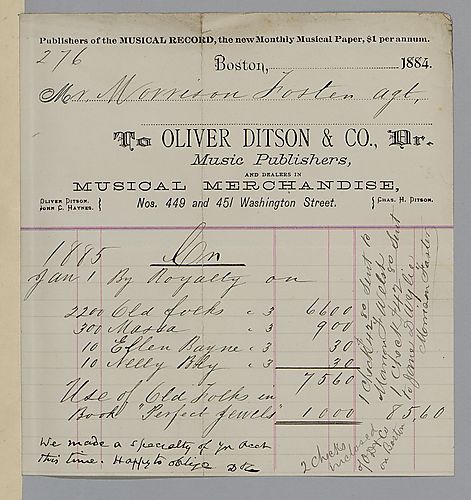 Publishers of the MUSICAL RECORD, the new Monthly Musical Paper, $1 per annum.
276
Boston, 1884.
Mr. Morrison Foster agt.
To OLIVER DITSON & CO., Dr.
Music Publishers,
AND DEALERS IN
MUSICAL MERCHANDISE,
OLIVER DITSON.
JOHN C. HAYNES.
Nos. 449 and 451 Washington Street.
CHAS. H. DITSON.
1885 Cr
Jan 1 By Royalty on
2200 Old folks c 3 6600
300 Massa c 3 900
10 Ellen Bayne c 3 30
10 Nelly Bly c 3 30
7560
Use of Old Folks in
Book "Perfect Jewels" 1000 85,60
We made a specialty of yr acct
this time. Happy to oblige D & Co
2 Checks
inclosed
of O D & Co
on Boston
1 Check 42.80 sent to
Marion F Welsh
1 Check $42.80 sent
to Jane Wylie
Morrison Foster